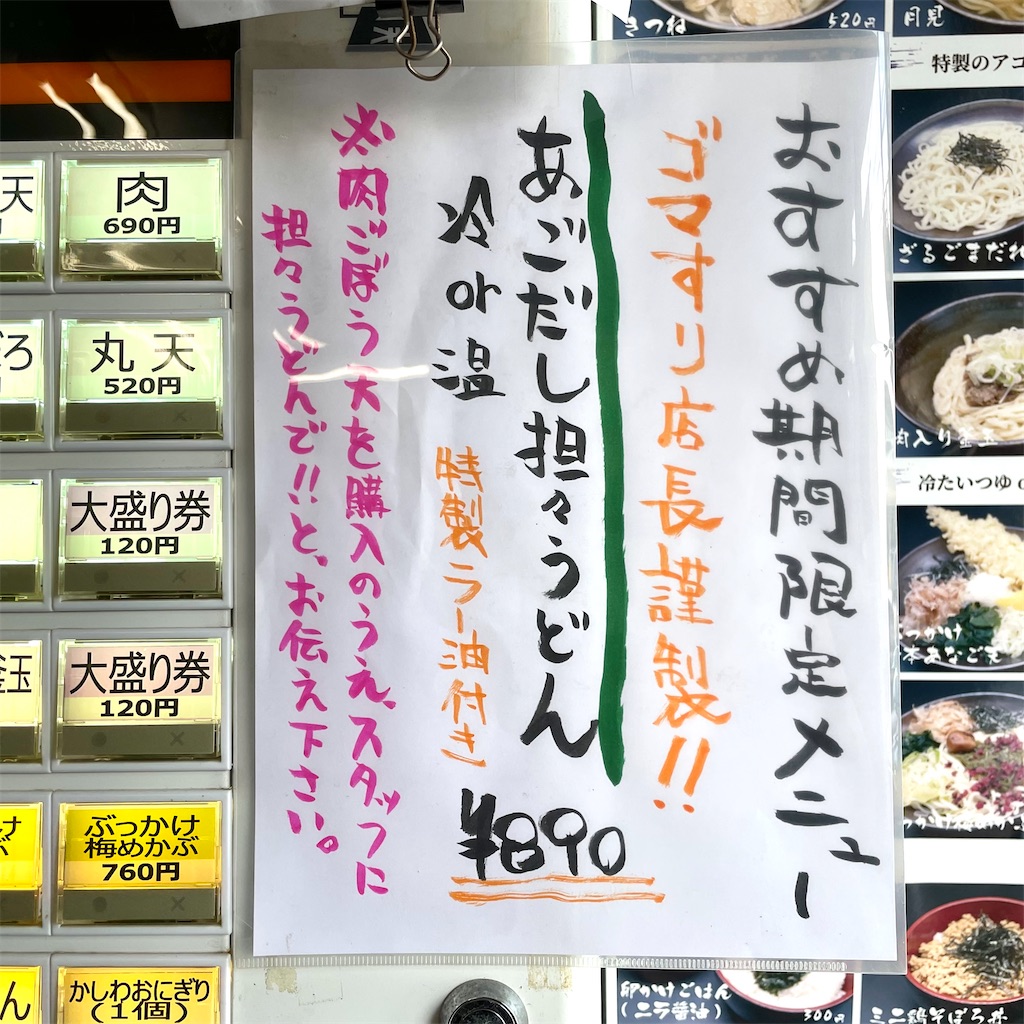 おすすめ期間限定メニュー
ゴマすり店長謹製!!
あごだし担々うどん
冷or温
特製ラー油付き
¥890
※肉ごぼう天を購入のうえ、スタッフに
担々うどんで!!と、お伝え下さい。
天
肉
690円
丸天
520円
大盛り券
120円
釜玉
大盛り券
120円
ぶっかけ
梅めかぶ
760円
かしわおにぎり
(1個)
きつね
520円
月見
特製のアゴ
ざるごまだれ
肉入り釜玉
冷たいつゆ
卵かけごはん
(ニラ醤油)
300円
ミニ鶏そぼろ丼